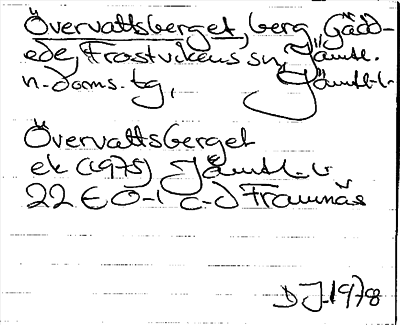 Övervattsberget, berg, Gädd-
ede, Frostvikens sn, Jämtl.
n. doms. tg, Jämtl. l.
Övervattsberget
ek (1975) Jämtl. l.
22 E 0-1 c-d Frannäs
DJ 1978